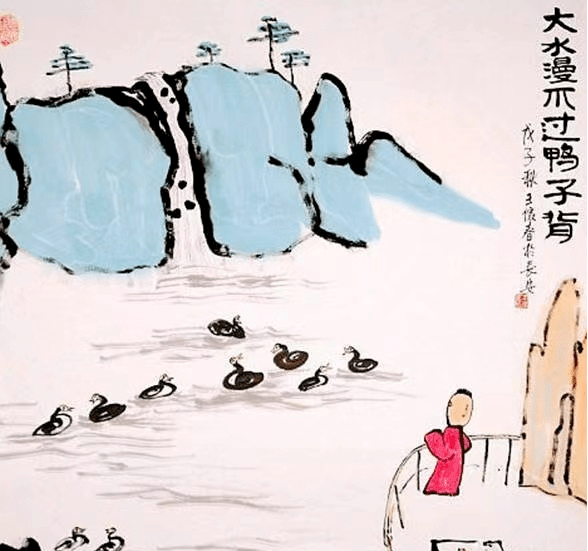 大水漫不过鸭子背
戊子秋王怀春於長安